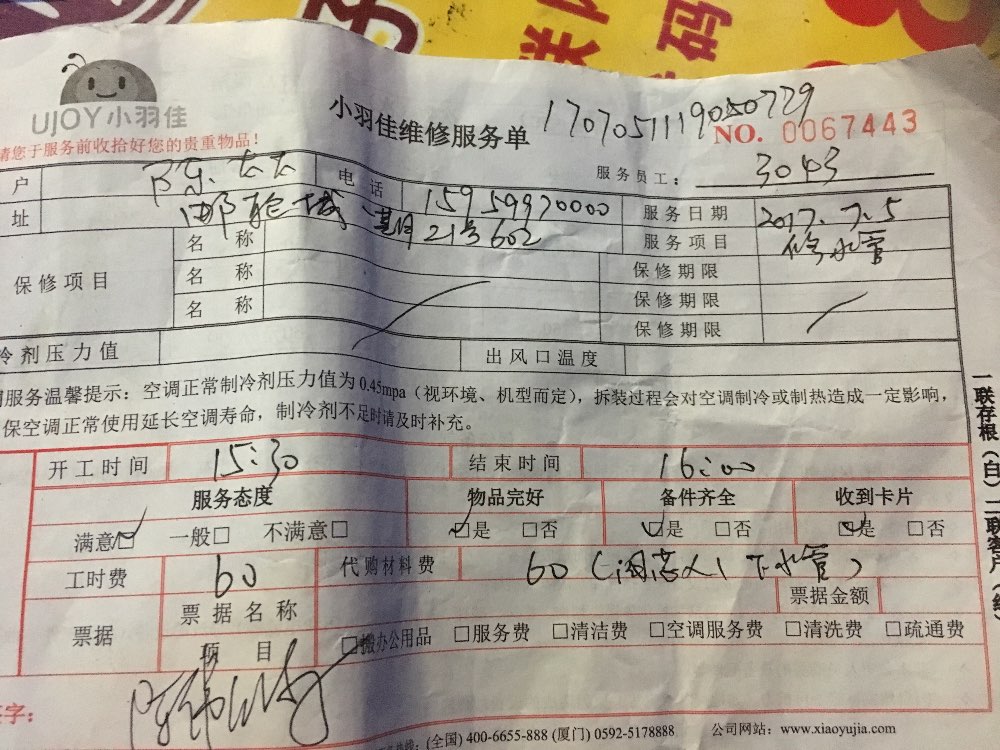 码
UJOY小羽佳
小羽佳维修服务单
1707051119050729
NO. 0067443
请您于服务前收拾好您的贵重物品！
服务员工： 3043
户 陈太太 电话 15959970000 服务日期 2017.7.5
址 21号602 服务项目 修水管
保修项目 名称 保修期限
名称 保修期限
名称 保修期限
冷剂压力值 出风口温度
服务温馨提示：空调正常制冷剂压力值为0.45mpa（视环境、机型而定），拆装过程会对空调制冷或制热造成一定影响，
保空调正常使用延长空调寿命，制冷剂不足时请及时补充。
开工时间 15:30 结束时间 16:00
服务态度 物品完好 备件齐全 收到卡片
满意☑ 一般□ 不满意□ ☑是 □否 ☑是 □否 ☑是 □否
工时费 60 代购材料费 60（ 下水管）
票据 票据名称 票据金额
项目 □搬办公用品 □服务费 □清洁费 □空调服务费 □清洗费 □疏通费
签字：
热线：(全国) 400-6655-888 (厦门) 0592-5178888 公司网站：www.xiaoyujia.com
一联存根（白）二联客户（红）